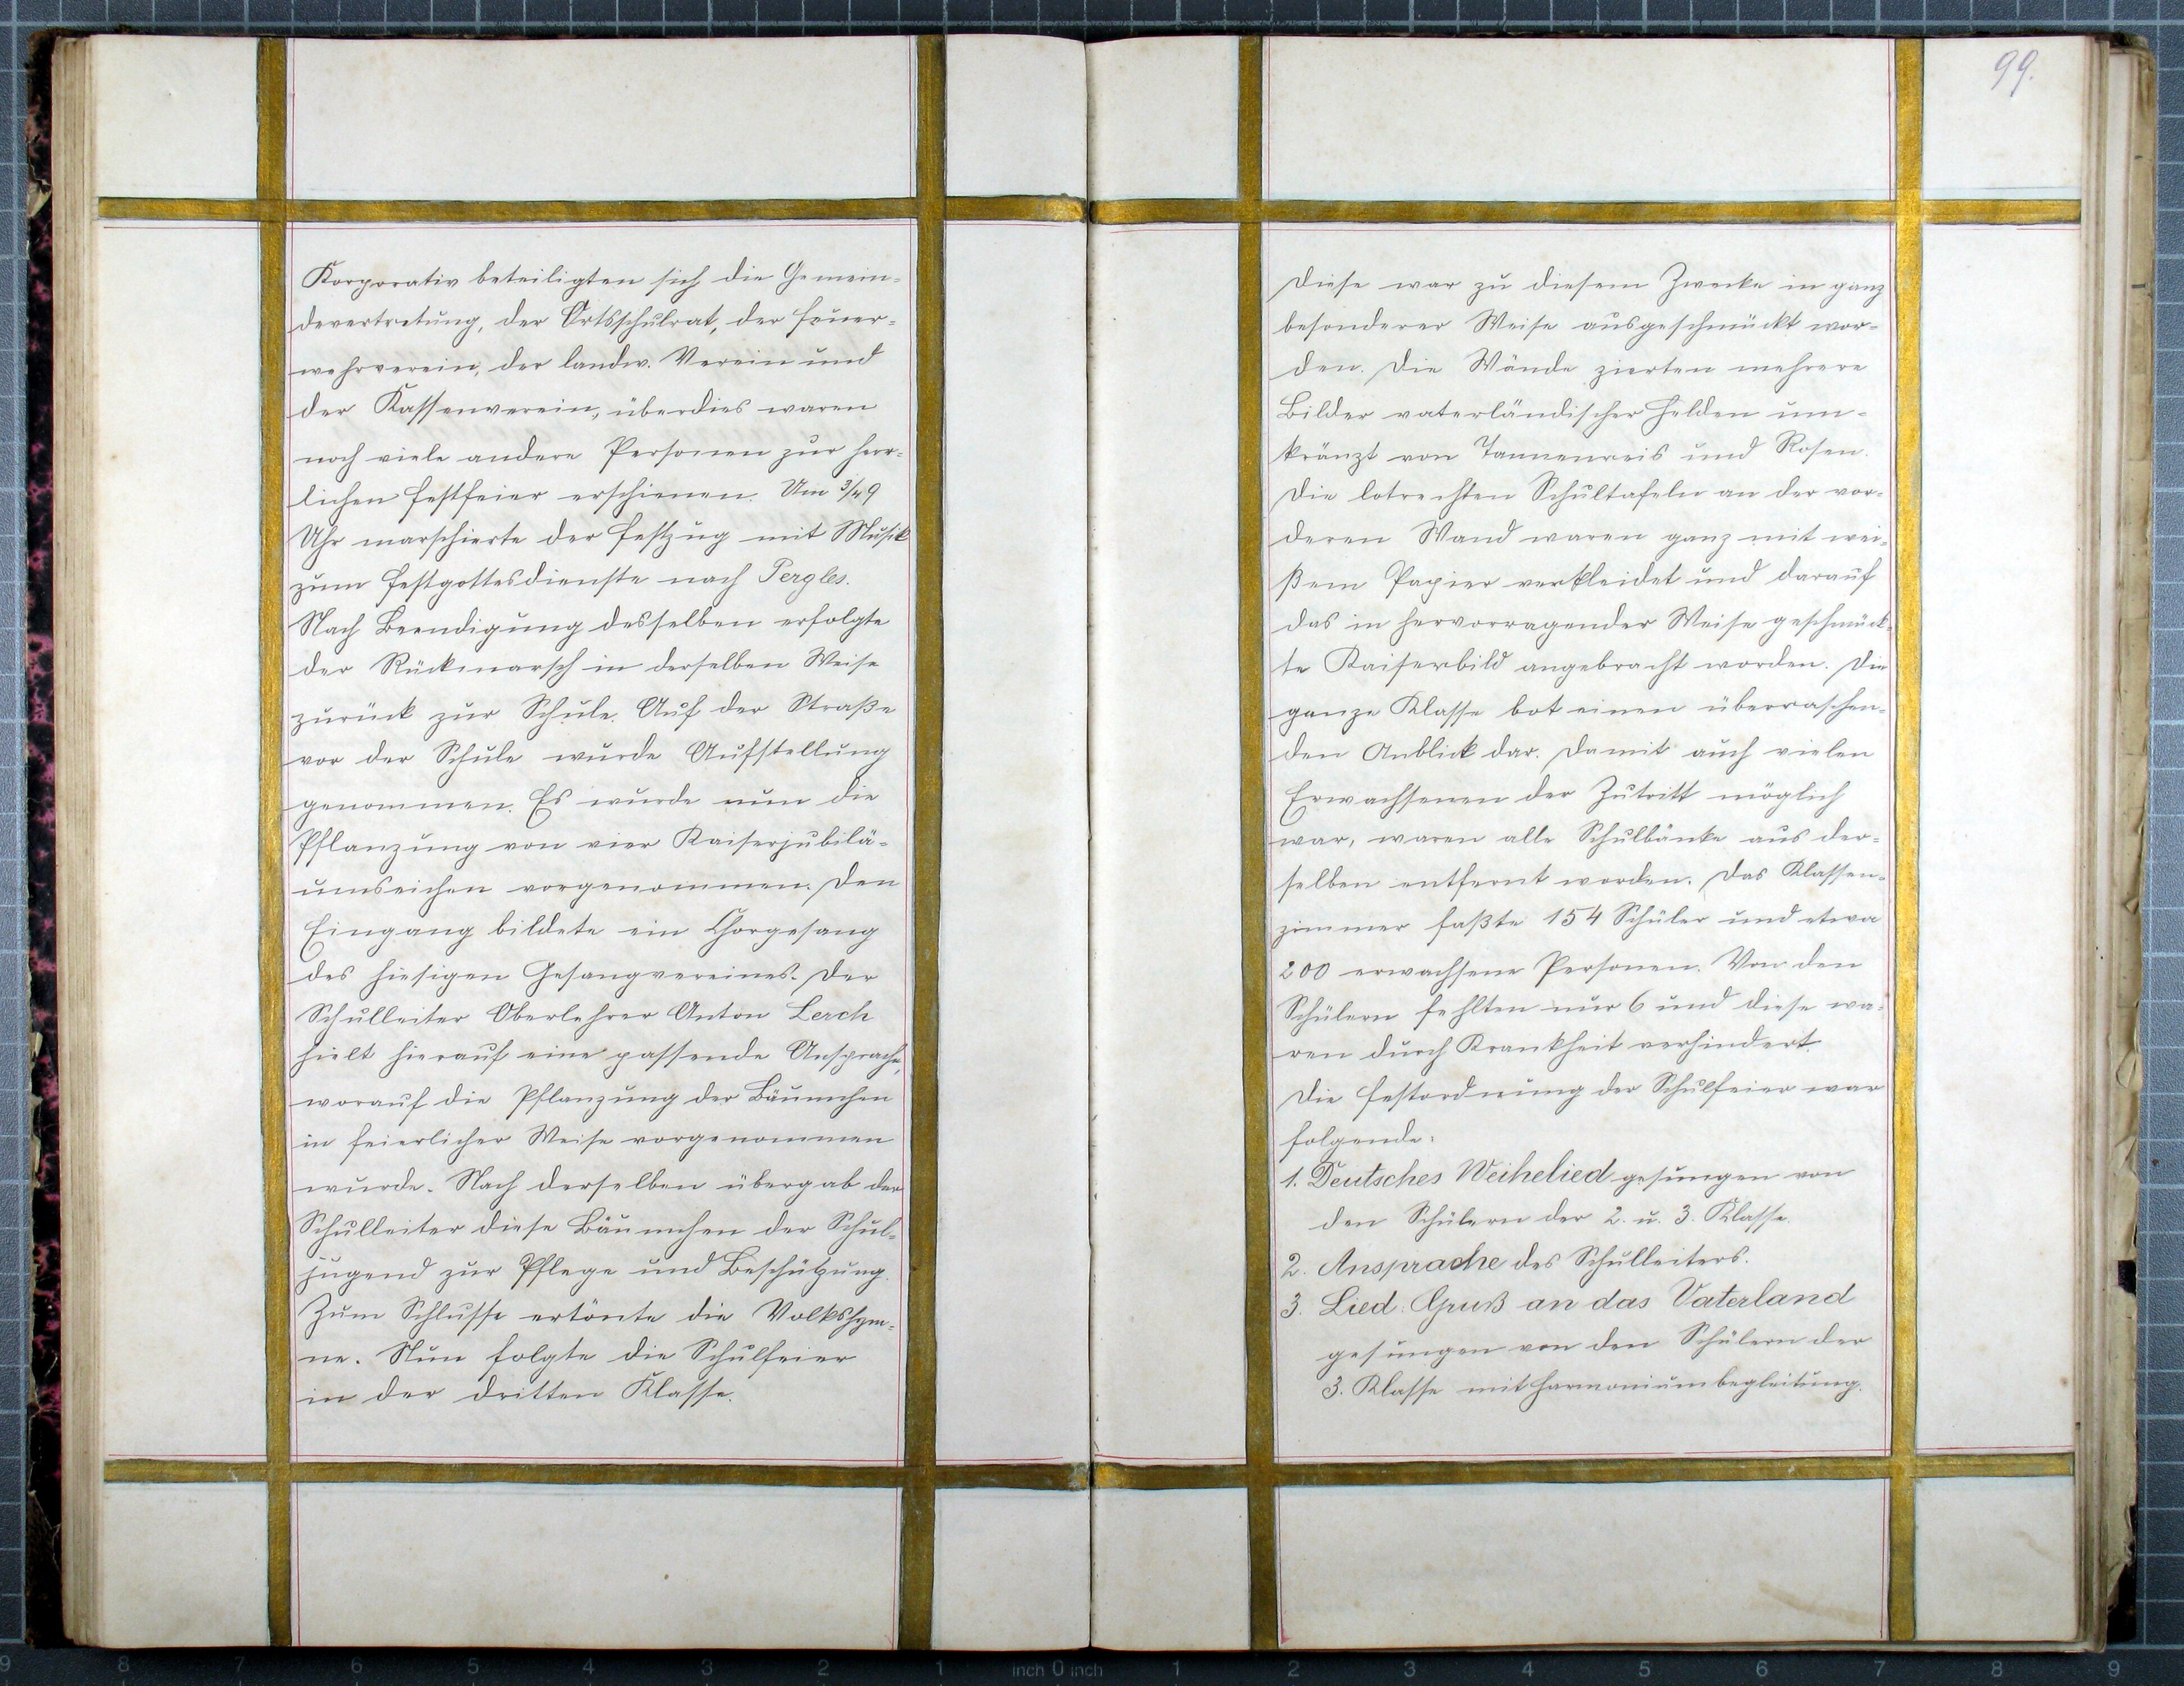 Korporativ beteiligten sich die Gemein-
devertretung, der Ortsschulrat, der Feuer-
wehrverein, der landw. Verein und
der Kassenverein, überdies waren
noch viele andere Personen zur herr-
lichen Festfeier erschienen. Um 3/4 9
Uhr marschierte der Festzug mit Musik
zum Festgottesdienste nach Pergles.
Nach Beendigung desselben erfolgte
der Rückmarsch in derselben Weise
zurück zur Schule. Auf der Straße
vor der Schule wurde Aufstellung
genommen. Es wurde nun die
Pflanzung von vier Kaiserjubilä-
umseichen vorgenommen. Den
Eingang bildete ein Chorgesang
des hiesigen Gesangvereines. Der
Schulleiter Oberlehrer Anton Lerch
hielt hierauf eine passende Ansprache,
worauf die Pflanzung der Bäumchen
in feierlicher Weise vorgenommen
wurde. Nach derselben übergab der
Schulleiter diese Bäumchen der Schul-
jugend zur Pflege und Beschützung.
Zum Schlusse ertönte die Volkshym-
ne. Nun folgte die Schulfeier
in der dritten Klasse.
99.
Diese war zu diesem Zwecke in ganz
besonderer Weise ausgeschmückt wor-
den. Die Wände zierten mehrere
Bilder vaterländischer Helden um-
kränzt von Tannenreis und Rosen.
Die lotrechten Schultafeln an der vor-
deren Wand waren ganz mit wei-
ßem Papier verkleidet und darauf
das in hervorragender Weise geschmück-
te Kaiserbild angebracht worden. Die
ganze Klasse bot einen überraschen-
den Anblick dar. Damit auch vielen
Erwachsenen der Zutritt möglich
war, waren alle Schulbänke aus der-
selben entfernt worden. Das Klassen-
zimmer faßte 154 Schüler und etwa
200 erwachsene Personen. Von den
Schülern fehlten nur 6 und diese wa-
ren durch Krankheit verhindert.
Die Festordnung der Schulfeier war
folgende:
1. Deutsches Weihelied gesungen von
den Schülern der 2. u. 3. Klasse.
2. Ansprache des Schulleiters.
3. Lied: Gruß an das Vaterland
gesungen von den Schülern der
3. Klasse mit Harmoniumbegleitung.
9 8 7 6 5 4 3 2 1 inch 0 inch 1 2 3 4 5 6 7 8 9